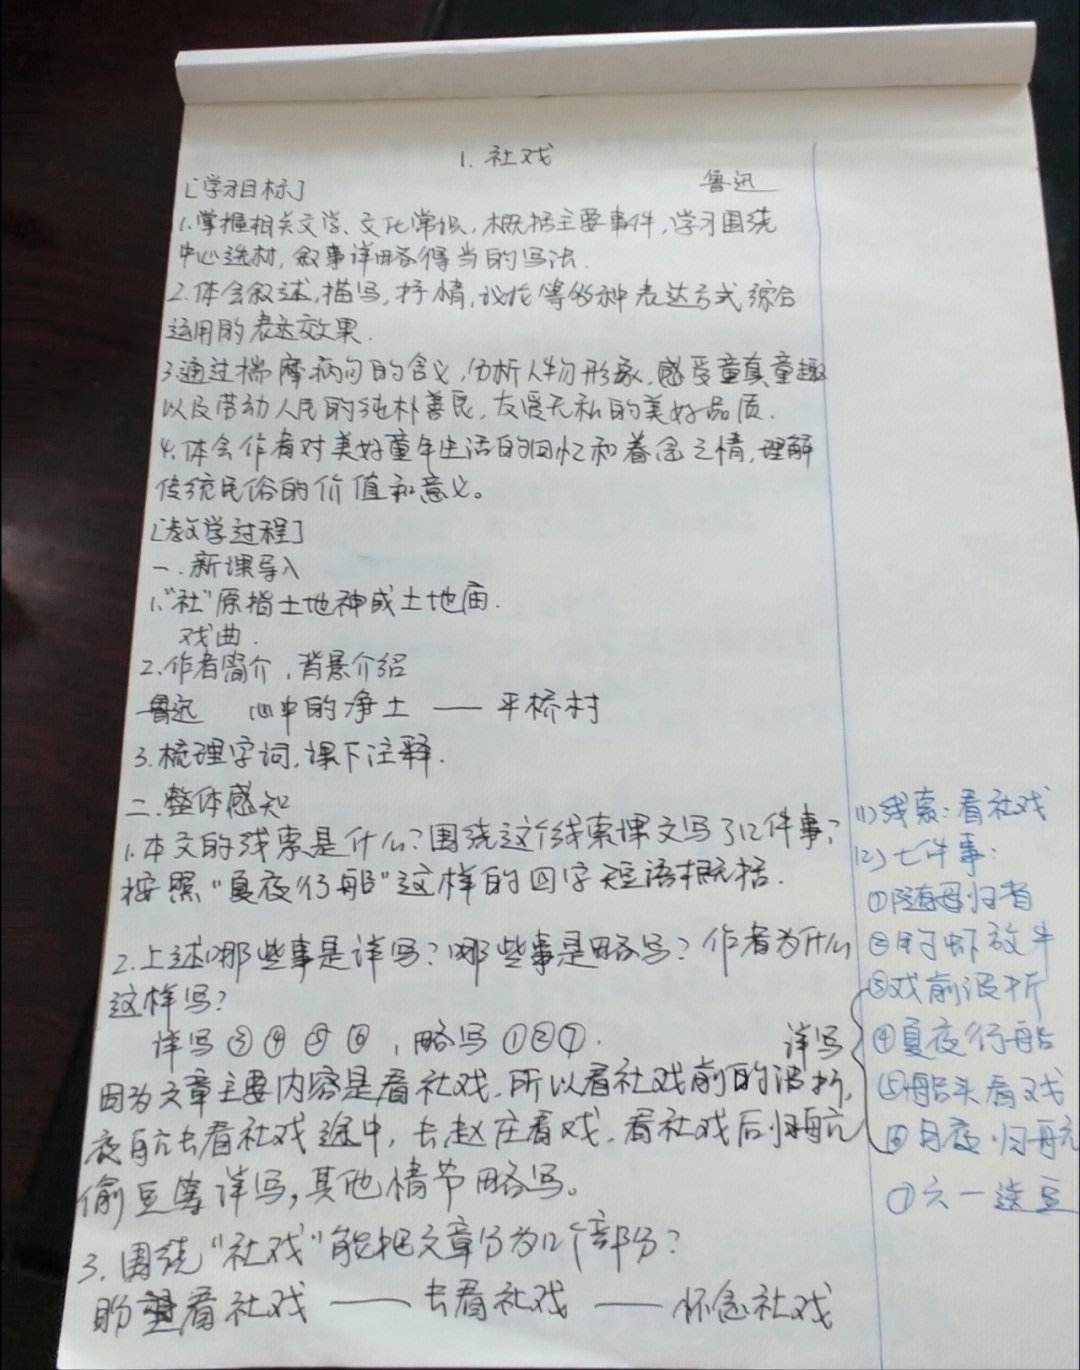 1. 社戏
鲁迅
[学习目标]
1.掌握相关文学、文化常识,概括主要事件,学习围绕
中心选材,叙事详略得当的写法.
2.体会叙述,描写,抒情,议论等多种表达方式综合
运用的表达效果.
3.通过揣摩病句的含义,分析人物形象,感受童真童趣
以及劳动人民的纯朴善良,友爱无私的美好品质.
4.体会作者对美好童年生活的回忆和眷念之情,理解
传统民俗的价值和意义。
[教学过程]
一.新课导入
1."社"原指土地神或土地庙.
戏曲.
2.作者简介,背景介绍
鲁迅 心中的净土 —— 平桥村
3.梳理字词,课下注释.
二.整体感知
1.本文的线索是什么?围绕这个线索课文写了几件事?
按照"夏夜行船"这样的四字短语概括.
2.上述哪些事是详写?哪些事是略写?作者为什么
这样写?
详写③④⑤⑥,略写①②⑦.
因为文章主要内容是看社戏,所以看社戏前的波折,
夜航去看社戏途中,去赵庄看戏,看社戏后归航
偷豆等详写,其他情节略写。
3.围绕"社戏"能把文章分为几个部分?
盼望看社戏 —— 去看社戏 —— 怀念社戏
(1)线索:看社戏
(2)七件事:
①随母归省
②钓虾放牛
③戏前波折
④夏夜行船
⑤船头看戏
⑥月夜归航
详写
⑦六一送豆